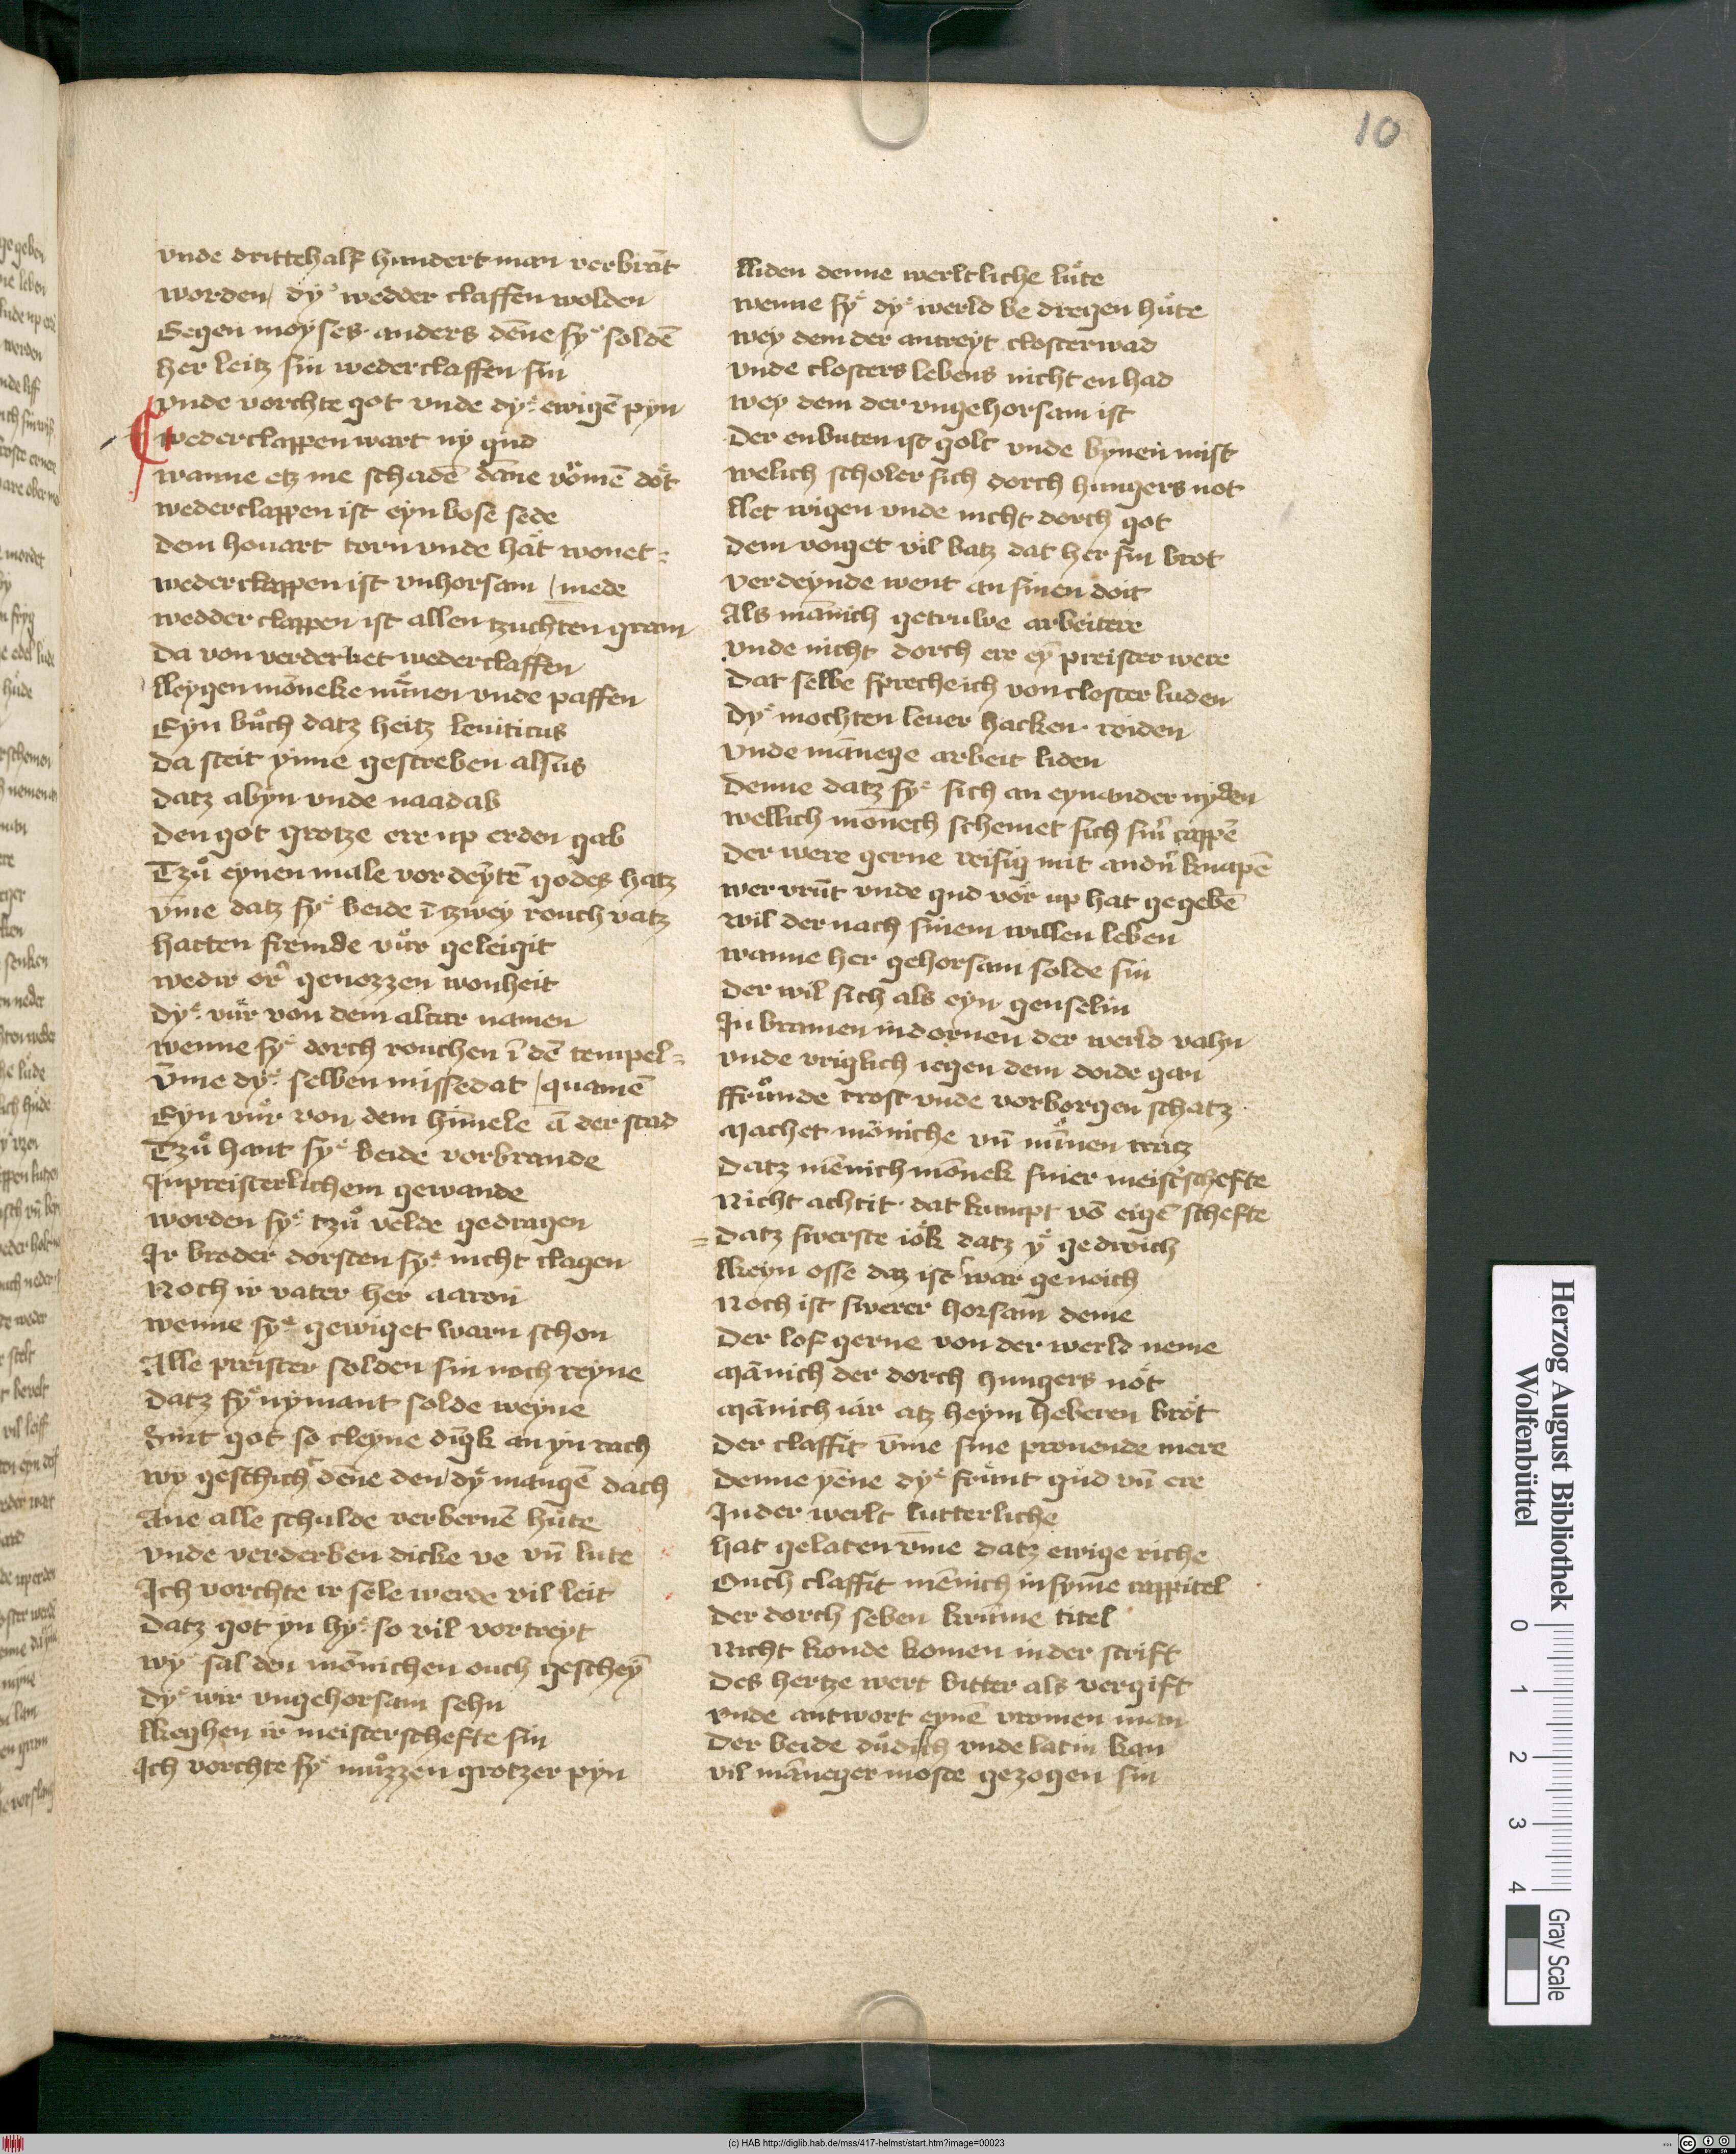 10
vnde drittehalf hundert man verbrāt
worden dyͤ wedder claffen wolden
Gegen moyses anders dēne syͤ soldē
her leitz sin wederclaffen sin
vnde vorchte got vnde dyͤ ewigē pyn
wederclappen wart ny gud
wanne etz me schadē dāne vrͦomē doͤt
wederclappen ist eyn bose sede
dem houart torn vnde haͤt wonet =
wederclappen ist vnhorsam / mede
wedder clappen ist allen tzuchten gram
Da von verderbet wederclaffen
lleygen mōneke nuͤnen vnde paffen
Eyn buͦch datz heitz leuiticus
Da steit ynne gescreben alsus
Datz abyn vnde naadab
Den got grotze ere up erden gab
Tzuͦ eynen male vordeyͤtē godes hatz
vm̄e datz syͤ beide ī tzwey rouch vatz
hatten fremde vuͦr geleigit
wedir or̄ genozzen wonheit
Dyͤ vuͤr von dem altar namen
wenne syͤ dorch rouchen ī dē tempel =
vm̄e dyͤ selben missedat / quamē
Eyn vuͦr von dem himele ā der stad
Tzuͦ hant syͤ beide vorbrande
In preisterlichem gewande
worden syͤ tzuͦ velde gedragen
Ir broder dorsten syͤ nicht clagen
Noch ir vater her aaron
wenne syͤ gewiget warn schon
Alle preister solden sin noch reyne
Datz syͤ nymant solde weyne
Sint got so cleyne dīgk an yn rach
wy geschich dēne den dyͤ mangē dach
Ane alle schulde verbernē huͤte
vnde verderben dicke ve vn̄ lute
Ich vorchte ir sele werde vil leit
Datz got yn hyͤ so vil vortreyt
wyͤ sal den mōnichen ouch gescheyͤ
Dyͤ wir vngehorsam sehn
lkeghen ir meisterschefte sin
Ich vorchte syͤ muͦzzen grotzer pyn
lliden denne werltliche luͤte
wenne syͤ dyͤ werld be dregen huͤte
wey dem der antreyt closterwad
vnde closters lebens nicht en had
wey dem der vngehorsam ist
Der enbuten ist golt vnde bȳnen mist
welich scholer sich dorch hungers not
llet wigen vnde nicht dorch got
Dem voget vil batz dat her sin brot
verdeynde went an sinen doit
Als mānich getruwe arbeitere
vnde nicht dorch ere eyͤ preister were
Dat selbe spreche ich von closter luden
Dyͤ mochten leuer hacken reiden
vnde mānege arbeit liden
Denne datz syͤ sich an eynander nyden
wellich mōnech schemet sich sin̄ cappē
Der were gerne reisig mit andn̄ knapē
wer vrūt vnde gud vor up hat gegebē
wil der nach sinem willen leben
wanne her gehorsam solde sin
Der wil sich als eyn genselin
In bramen in dornen der werld vahn
vnde vriglich iegen dem dode gan
ffruͦnde trost vnde vorborgen schatz
Machet mōniche vn̄ nuͦnen tratz
Datz mēnich mōnek siner meist̄schefte
Nicht achtit dat kumpt vō eigē schefte
= Datz swerste ioͤk datz yͤ gedwich
lkeyn osse daz ist war geneich
Noch ist swerer horsam deme
Der lof gerne von der werld neme
Mānich der dorch hungers noͤt
Mānich iar atz heym heberen broͤt
Der claffit vm̄e sine prouende mere
Denne yene dyͤ fruͤnt gud vn̄ ere
In der werlt lutterliche
hat gelaten vm̄e datz ewige riche
Ouch claffit mēnich in sym̄e cappitel
Der dorch seben krūme titel
Nicht konde komen in der scrift
Des hertze wert bitter als vergift
vnde antwort eynē vromen man
Der beide duͦdisch vnde latin kan
vil māneger moste gezogen sin
Herzog August Bibliothek
Wolfenbüttel
0 1 2 3 4
Gray Scale
(c) HAB http://diglib.hab.de/mss/417-helmst/start.htm?image=00023